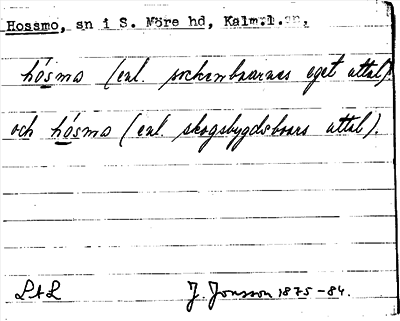 Hossmo, sn i S. Möre hd, Kalm. l.
hósmo (enl. sockenboarnas eget uttal)
och hósmo (enl. skogsbygdsboars uttal).
LAL J. Jonsson 1875-84.